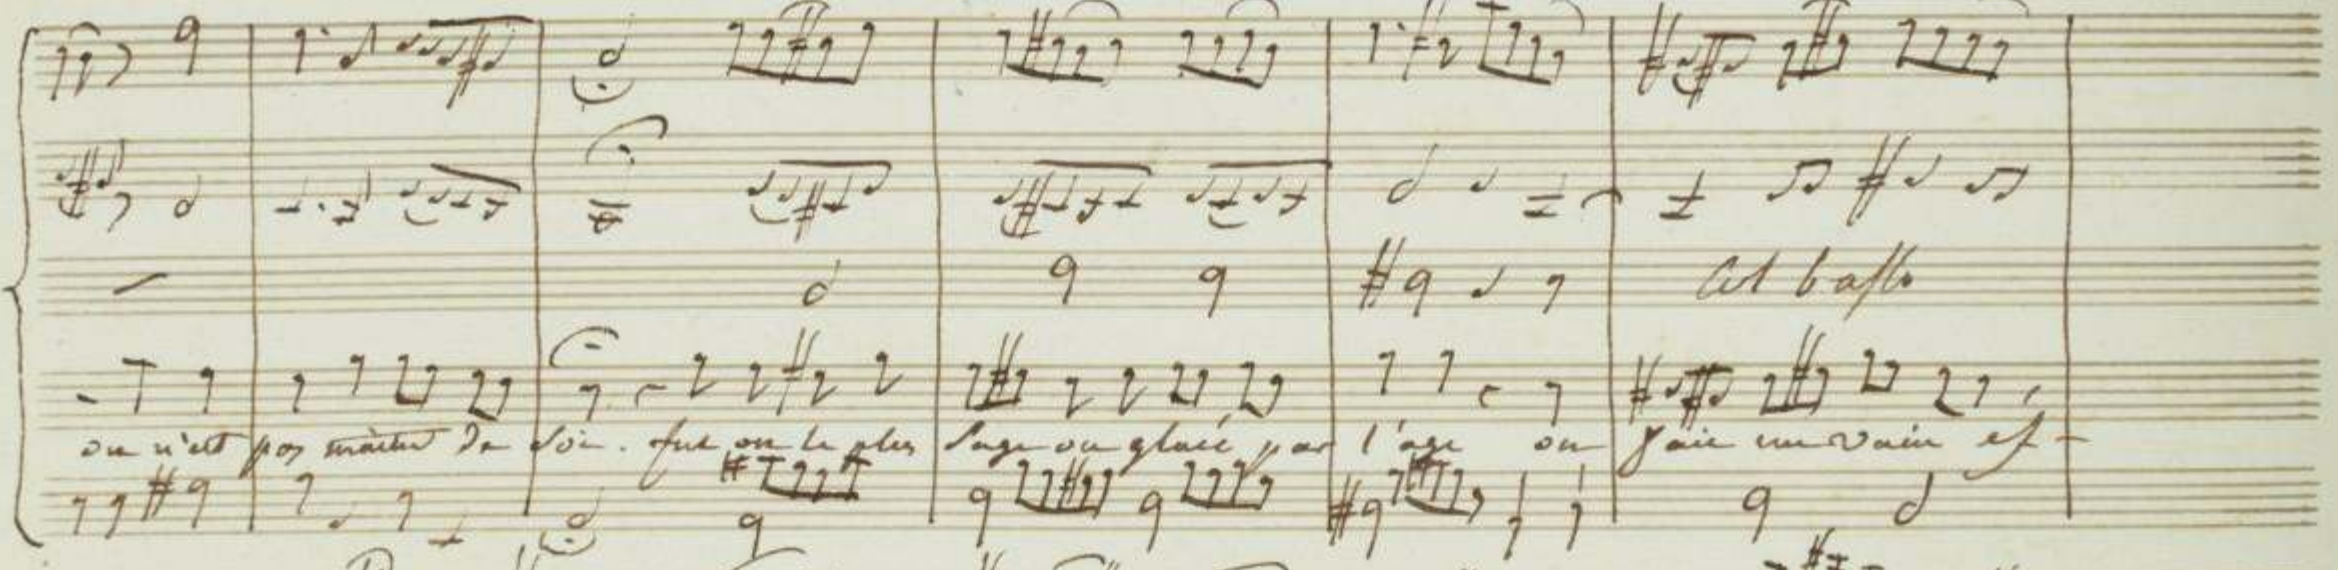 Col basso
on n'est pas maitre de soi. fut on le plus sage ou glacé par l'age on fait un vain ef-